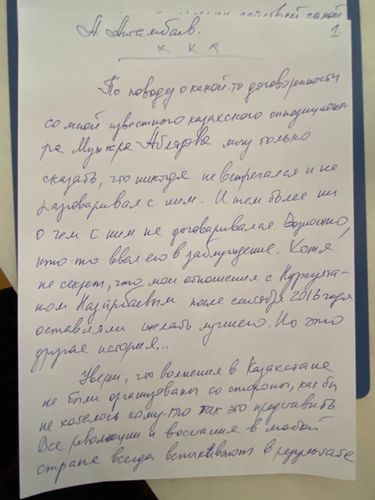 А. Атамбаев.
1
х х х
По поводу о какой-то договоренности
со мной известного казахского оппозиционе-
ра Мухтара Аблязова могу только
сказать, что никогда не встречался и не
разговаривал с ним. И тем более ни
о чем с ним не договаривался. Возможно,
кто-то ввел его в заблуждение. Хотя,
не секрет, что мои отношения с Нурсулта-
ном Назарбаевым после сентября 2016 года
оставляли желать лучшего. Но это
другая история...
Уверен, что волнения в Казахстане
не были организованы со стороны, как бы
не хотелось кому-то так это представить.
Все революции и восстания в любой
стране всегда вспыхивают в результате